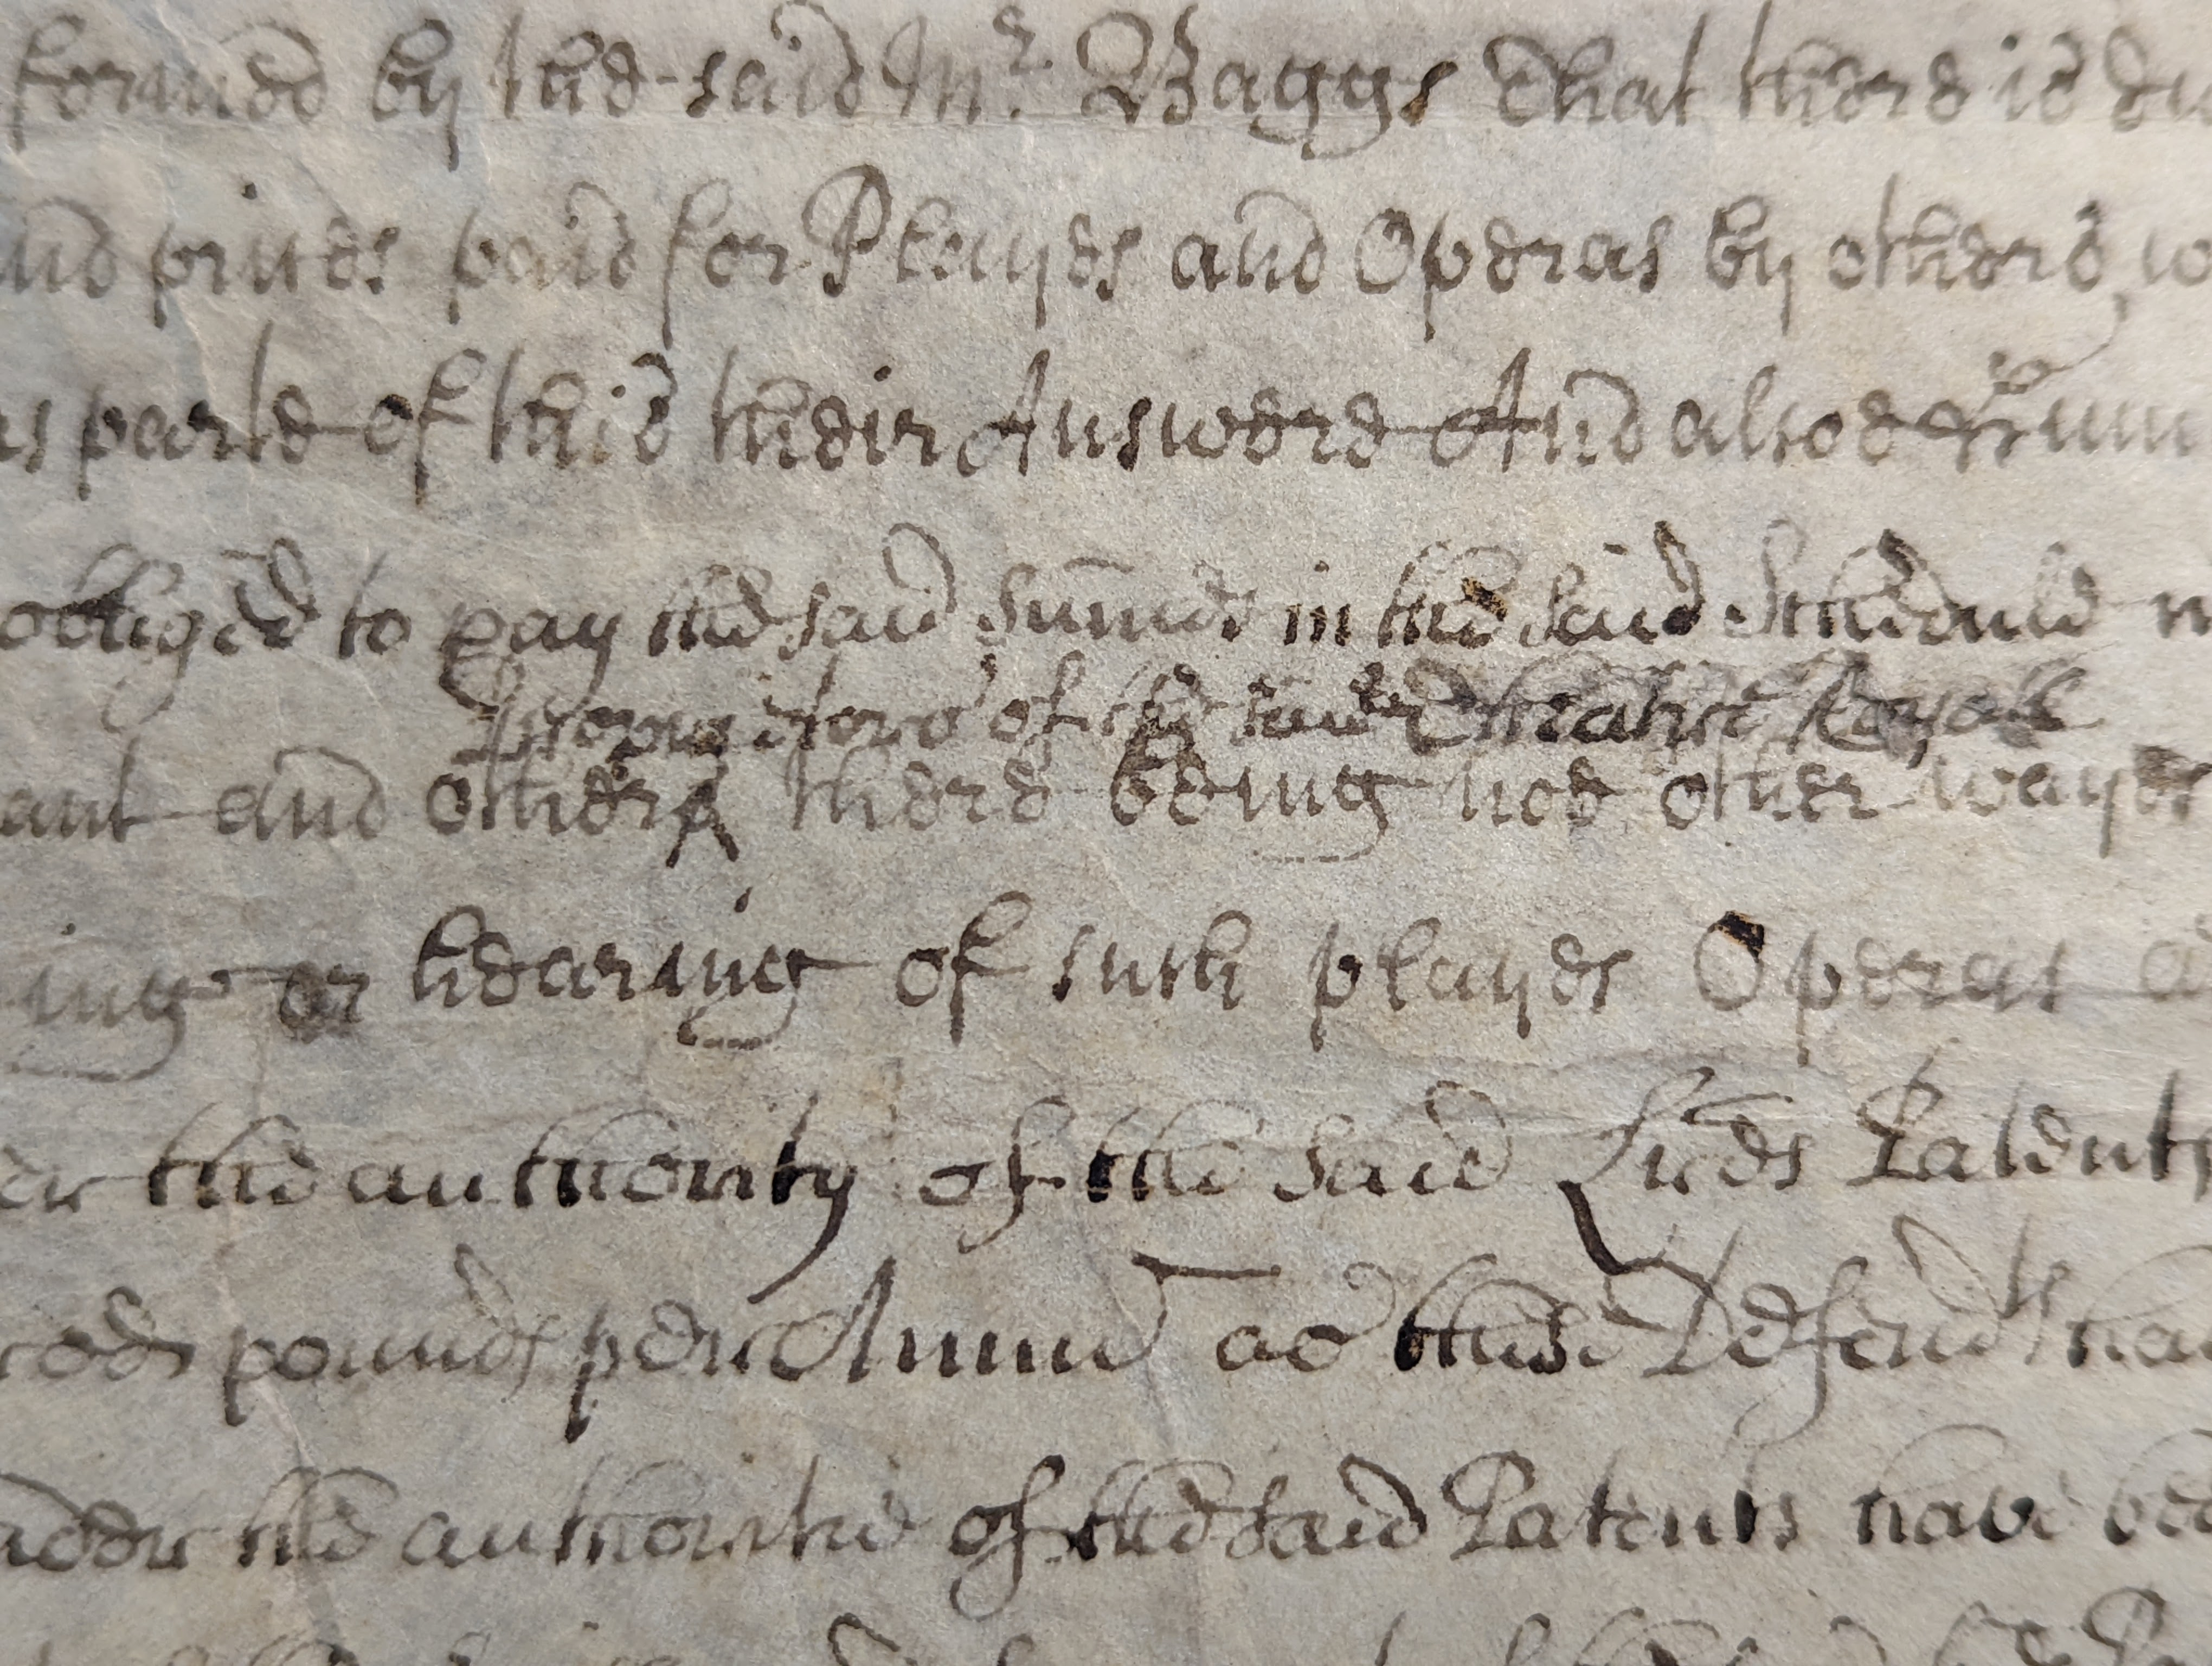 formed by the said Mr. Baggs That there is du
and prices paid for Playes and Operas by others, w
as parte of this their Answere And alsoe
obliged to pay the said Summes in the said Schedule
Proprietors of the said Theatre Royall
ant and others there being noe other wayes
ing or hearing of such playes Operas a
er the authority of the said Lres Patents
pounds per Annu as these Defendts ha
under the authoritie of the said Patents have bee